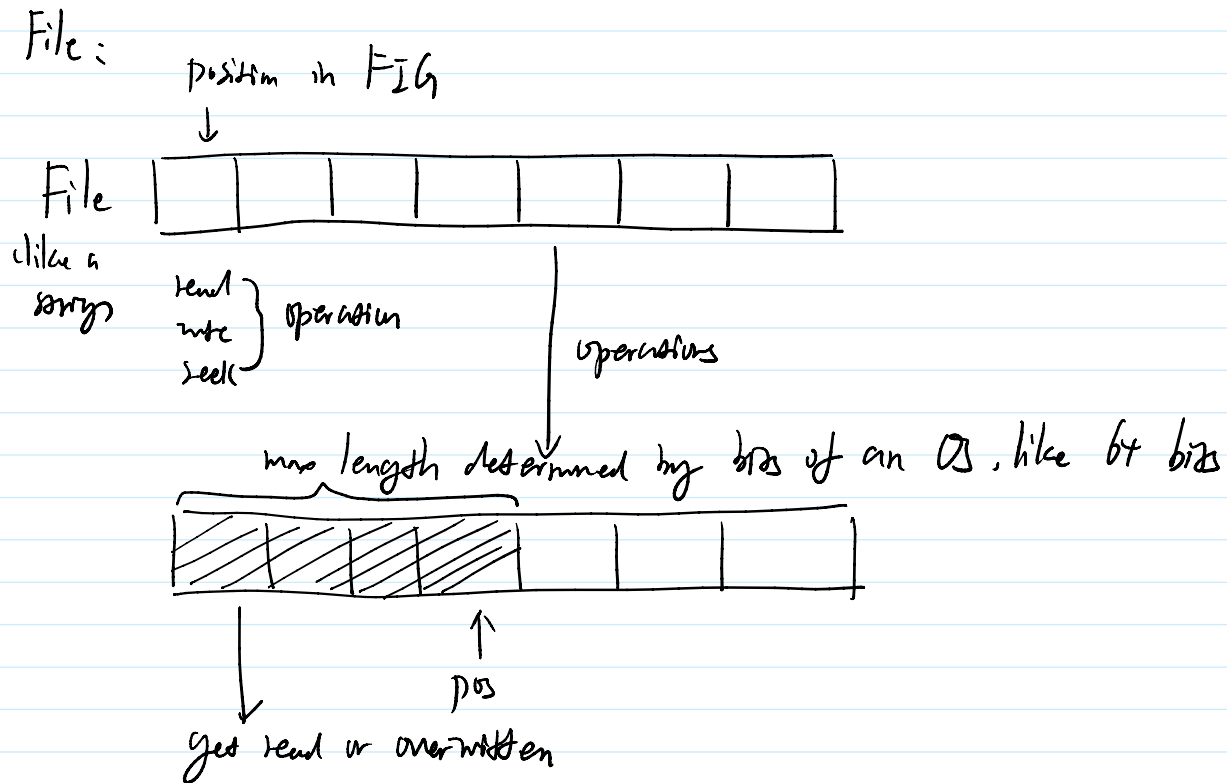 File:
position in FIG
File
like a
read
write
seek
operation
operations
max length determined by bits of an OS, like 64 bits
pos
get read or overwritten